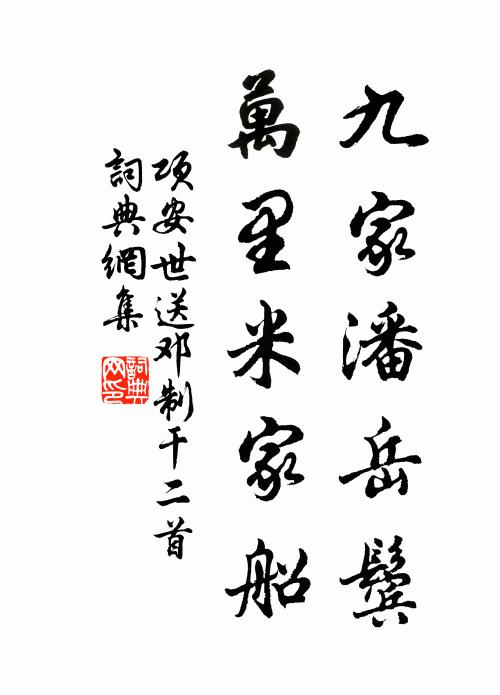 九家潘岳鬓
萬里米家船
项安世送邓制干二首
詞典網集
詞典网印